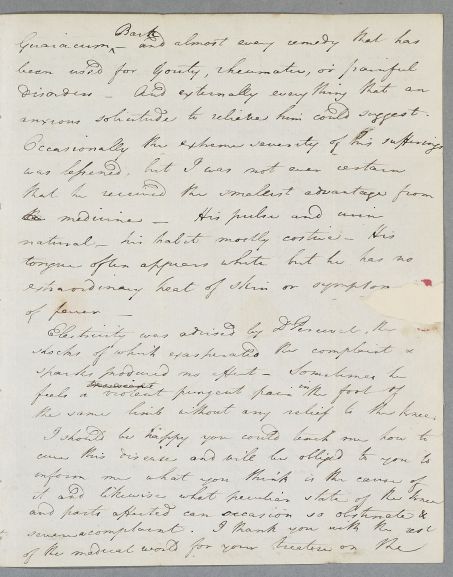 Bark
Guaiacum ^ and almost every remedy that has
been used for Gouty, rheumatic, or painful
disorders – And externally every thing that an
anxious solicitude to relieve him could suggest.
Occasionally the extreme severity of his sufferings
was lessened, but I was not ever certain
that he received the smallest advantage from
the medicine – His pulse and urine
natural – his habit mostly costive – His
tongue often appears white but he has no
extraordinary heat of skin or symptom
of fever –
Electricity was advised by Dr Percival, the
shocks of which exasperated the complaint &
sparks produced no effect – Sometimes he
feels a violent pungent pain in the foot of
the same limb without any relief to the knee.
I should be happy you could teach me how to
cure this disease and will be obliged to you to
inform me what you think is the cause of
it and likewise what peculiar state of the knee
and parts affected can occasion so obstinate &
severe a complaint. I thank you with the rest
of the medical world for your treatise on the